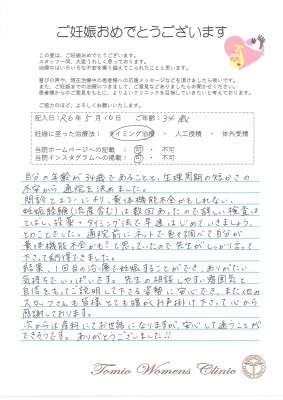 ご妊娠おめでとうございます
この度は、ご妊娠おめでとうございます。
スタッフ一同、大変うれしく思っております。
治療中はいろいろな不安を乗り越えてこられたことと思います。
喜びの声や、現在治療中の患者様への応援メッセージなどを頂けましたら幸いです。
また、ご妊娠までの治療につきまして、ご意見などがございましたらお聞かせください。
患者様からのご意見をもとに、よりよいクリニックを目指していきたいと考えております。
ご協力のほど、よろしくお願いいたします。
記入日：R6年5月16日 ご年齢：34歳
妊娠に至った治療法：タイミング治療・人工授精・体外受精
当院ホームページへの記載：可・不可
当院インスタグラムへの掲載：可・不可
自分の年齢が34歳であることと、生理周期の短かさの
不安から通院を決めました。
問診とエコーにより、黄体機能不全かもしれない、
妊娠経験(流産含む)は数回あったので詳しい検査は
とばし、投薬・タイミング法で早速はじめていきましょう、
とのことでした。通院前にネットで色々調べて自分が
黄体機能不全かも?と思っていたので先生がしっかり言って
下さって納得できました。
結果、1回目の治療で妊娠することができ、ありがたい
気持ちでいっぱいです。先生の相談しやすい雰囲気と
自信をもってご説明して下さる姿勢に安心でき、また他の
スタッフさんも皆様とても暖かくお声掛け下さって心から
感謝しております。
次からは産科にてお世話になりますが、安心して通うことが
できそうです。ありがとうございました!!
Tomio Womens Clinic